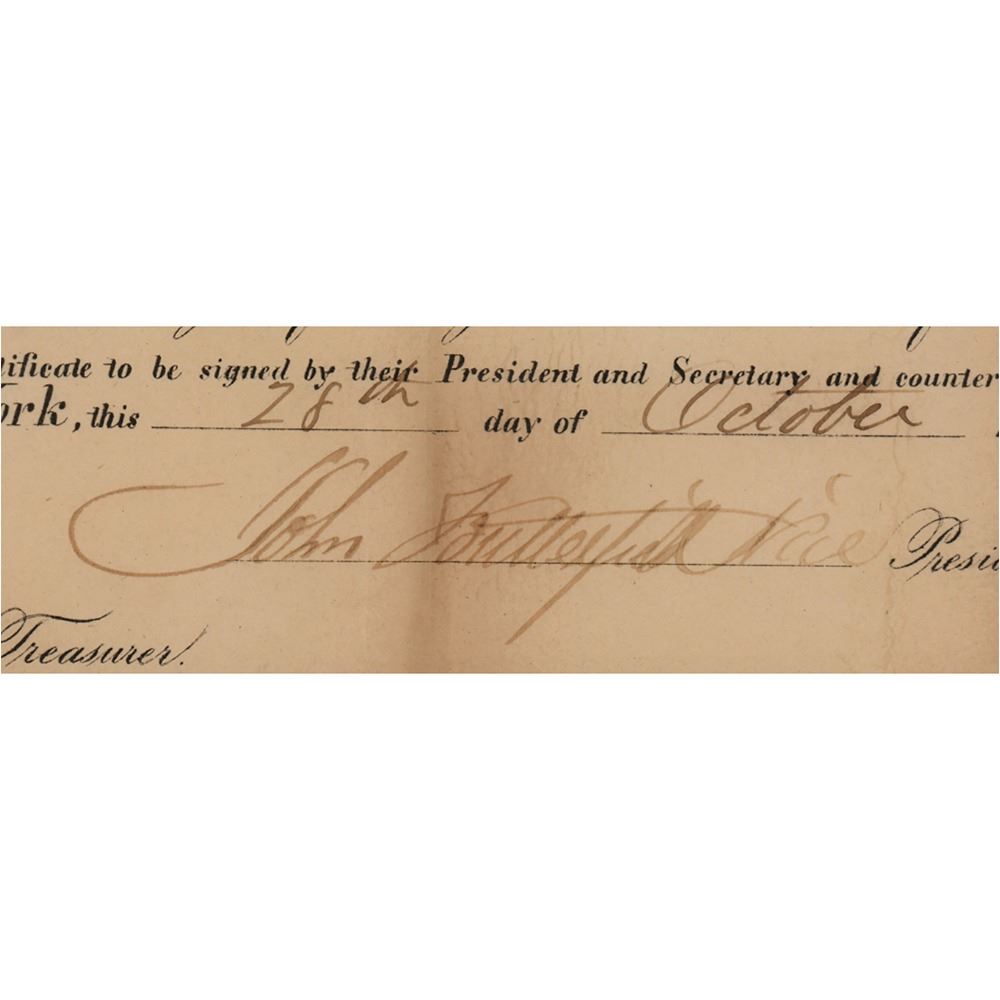 tificate to be signed by their President and Secretary and counter
ork, this 28th day of October
John Butterfield Vice Presid
Treasurer.